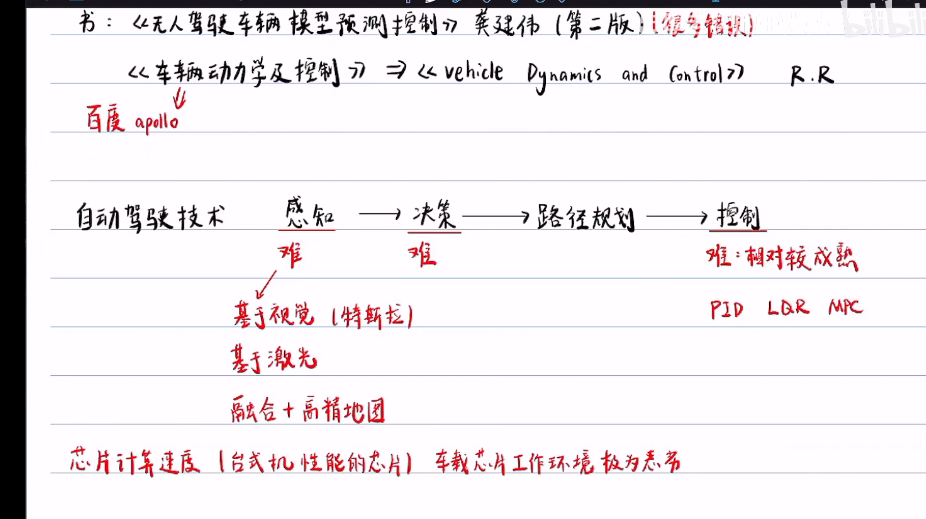 书：《无人驾驶车辆模型预测控制》 龚建伟 (第二版) (很多错误) bilibili
《车辆动力学及控制》 ⇒ 《vehicle Dynamics and Control》 R.R
百度 apollo
自动驾驶技术 感知 → 决策 → 路径规划 → 控制
难 难 难：相对较成熟
基于视觉 (特斯拉) PID LQR MPC
基于激光
融合 + 高精地图
芯片计算速度 (台式机性能的芯片) 车载芯片工作环境极为恶劣